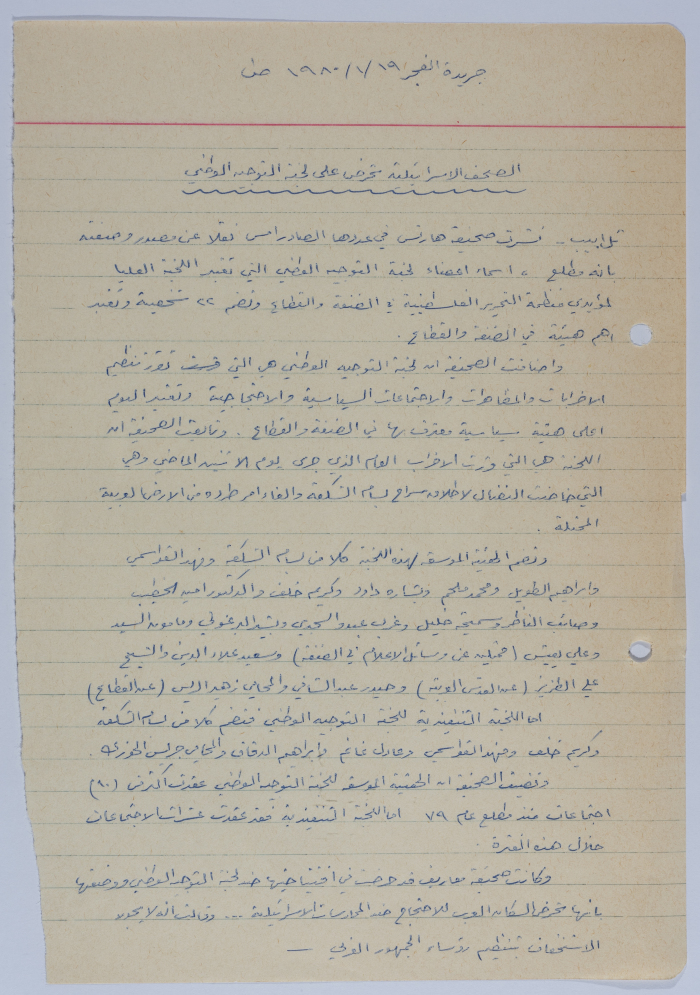 جريدة الفجر ١٩/١/١٩٨٠ ص١
الصحف الاسرائيلية تحرض على لجنة التوجيه الوطني
تل ابيب .. نشرت صحيفة هارتس في عددها الصادر امس نقلا عن مصدر وصفته
بانه مطلع ، اسماء اعضاء لجنة التوجيه الوطني التي تعتبر اللجنة العليا
لمؤيدي منظمة التحرير الفلسطينية في الضفة والقطاع وتضم ٢٢ شخصية وتعتبر
اهم هيئة في الضفة والقطاع .
واضافت الصحيفة ان لجنة التوجيه الوطني هي التي تقرر تنظيم
الاضرابات والمظاهرات والاجتماعات السياسية والاحتجاجية وتعتبر اليوم
اعلى هيئة سياسية معترف بها في الضفة والقطاع . وتابعت الصحيفة ان
اللجنة هي التي قررت الاضراب العام الذي جرى يوم الاثنين الماضي وهي
التي خاضت النضال لاطلاق سراح بسام الشكعة والغاء امر طرده من الارض العربية
المحتلة .
وتضم الهيئة الموسعة لهذه اللجنة كلا من بسام الشكعة وفهد القواسمي
وابراهيم الطويل ومحمد ملحم وبشاره داود وكريم خلف والدكتور امين الخطيب
وصائب الناظر وسميحة خليل وعزت عبدو السعدي وبشير البرغوثي ومامون السيد
وعلي يعيش (ممثلين عن وسائل الاعلام في الضفة) وسعيد علاء الدين والشيخ
علي الطزيز (عن القدس العربية) وحيدر عبد الشافي والمحامي زهير الريس (عن القطاع)
اما اللجنة التنفيذية للجنة التوجيه الوطني فتضم كلا من بسام الشكعة
وكريم خلف وفهد القواسمي وعادل غانم وابراهيم الدقاق والمحامي جريس الخوري .
وتضيف الصحيفة ان الهيئة الموسعة للجنة التوجيه الوطني عقدت اكثر من (٩٠)
اجتماعات منذ مطلع عام ٧٩ اما اللجنة التنفيذية فقد عقدت عشرات الاجتماعات
خلال هذه الفترة .
وكانت صحيفة معاريف قد حرضت في افتتاحيتها ضد لجنة التوجيه الوطني ووصفتها
بانها تحرض السكان العرب للاحتجاج ضد الممارسات الاسرائيلية ... وقالت انه لا يجوز
الاستخفاف بتنظيم رؤساء الجمهور العربي —